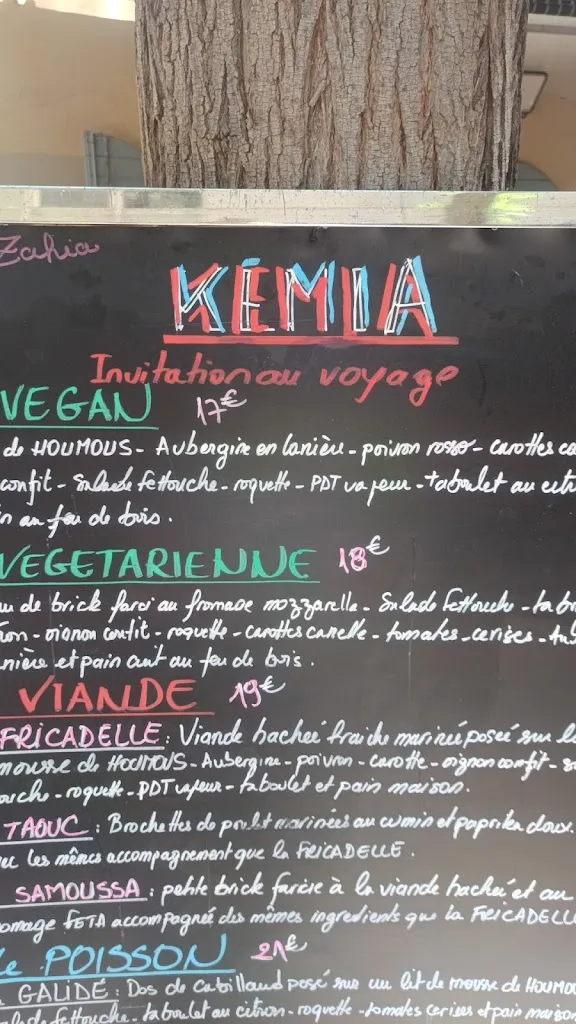 Zahia
KEMIA
Invitation au voyage
VEGAN 17€
de HOUMOUS - Aubergine en lanière - poivron rosso - carottes ca
confit - Salade fettouche - roquette - PDT vapeur - taboulet au citr
n au feu de bois.
VEGETARIENNE 18€
u de brick farci au fromage mozzarella - Salade fettouche - tabo
ron - oignon confit - roquette - carottes canelle - tomates - cerises - Au
nière et pain cuit au feu de bois.
VIANDE 19€
FRICADELLE : Viande hacheé fraiche marineé poseé sur la
mousse de HOUMOUS - Aubergine - poivron - carotte - oignon confit - s
ouche - roquette - PDT vapeur - taboulet et pain maison.
TAOUC : Brochettes de poulet marinées au cumin et paprika doux.
ec les mêmes accompagnement que la FRICADELLE.
SAMOUSSA : petite brick farcie à la viande hacheé et au
omage FETA accompagné des mêmes ingredients que la FRICADELLE
Le POISSON 21€
GALIDE : Dos de cabillaud posé sur un lit de mousse de HOUMOU
lade fettouche - taboulet au citron - roquette - tomates cerises et pain maison